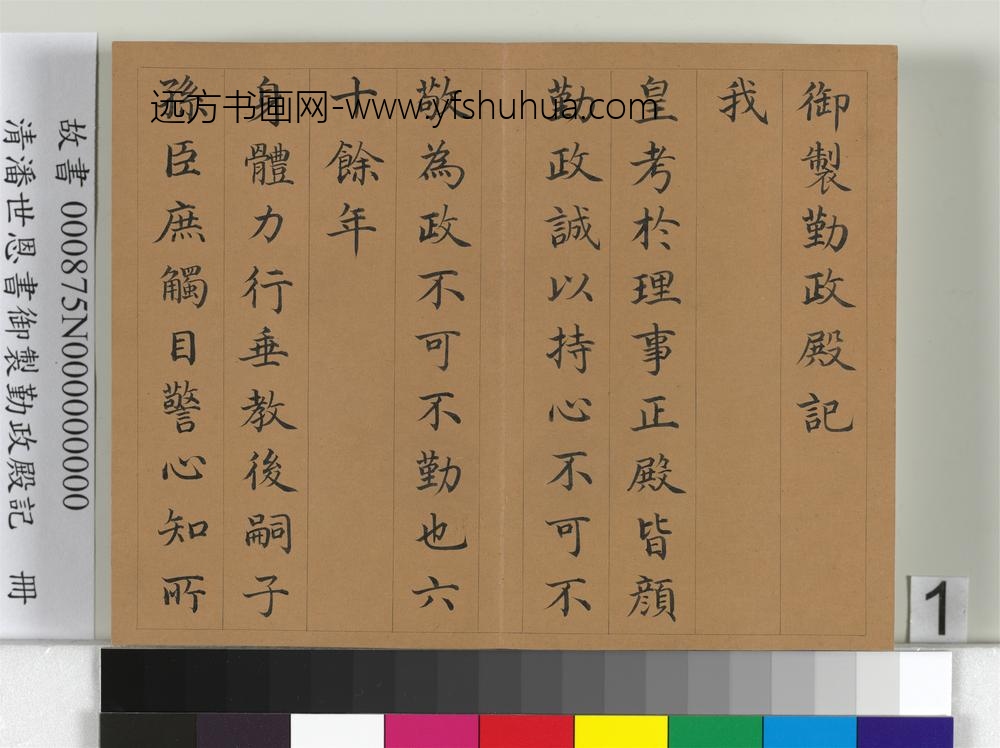 御製勤政殿記
我
皇考於理事正殿皆顔
勤政誠以持心不可不
敬為政不可不勤也六
十餘年
身體力行垂教後嗣子
孫臣庶觸目警心知所
远方书画网-www.yfshuhua.com
故書 000875N000000000
清潘世恩書御製勤政殿記 冊
1